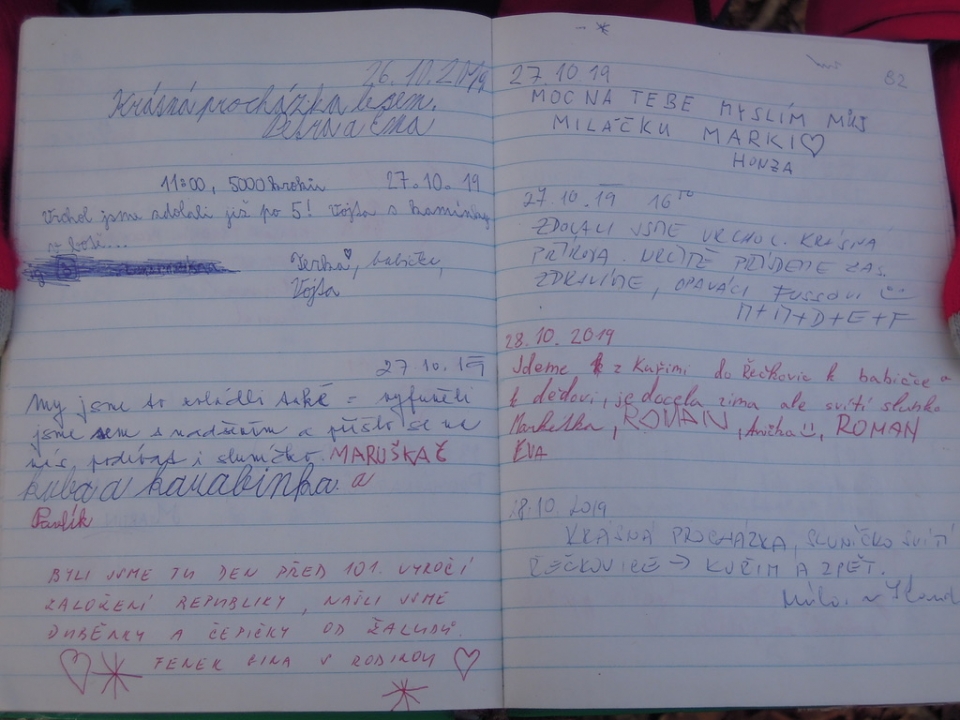 26.10.2019
Krásná procházka lesem.
Petra a Ema
11:00, 5000 kroků 27.10.19
Vrchol jsme zdolali již po 5! Vojta s kamínky
v botě...
Terka, babička,
Vojta
27.10.19
My jsme to zvládli také = vyfuněli
jsme sem s nadšením a přišlo se na
nás podívat i sluníčko. MARUŠKA
kuba a karabinka a
Pavlík
BYLI JSME TU DEN PŘED 101. VÝROČÍ
ZALOŽENÍ REPUBLIKY, NAŠLI JSME
DUBĚNKY A ČEPIČKY OD ŽALUDŮ.
FENEK S RODINOU
82
27.10 19
MOC NA TEBE MYSLÍM MŮJ
MILÁČKU MARKI
HONZA
27.10.19 16
ZDOLALI JSME VRCHOL. KRÁSNÁ
PŘÍRODA. URČITĚ PŘIJDEME ZAS.
ZDRAVÍME, OPAVÁCI
M+M+D+E+F
28.10.2019
Jdeme z Kuřimi do Řečkovic k babičce a
k dědovi, je docela zima ale svítí slunko
Markétka, ROMAN, Anička, ROMAN
EVA
28.10 2019
KRÁSNÁ PROCHÁZKA, SLUNÍČKO SVÍTÍ
ŘEČKOVICE → KUŘIM A ZPĚT.